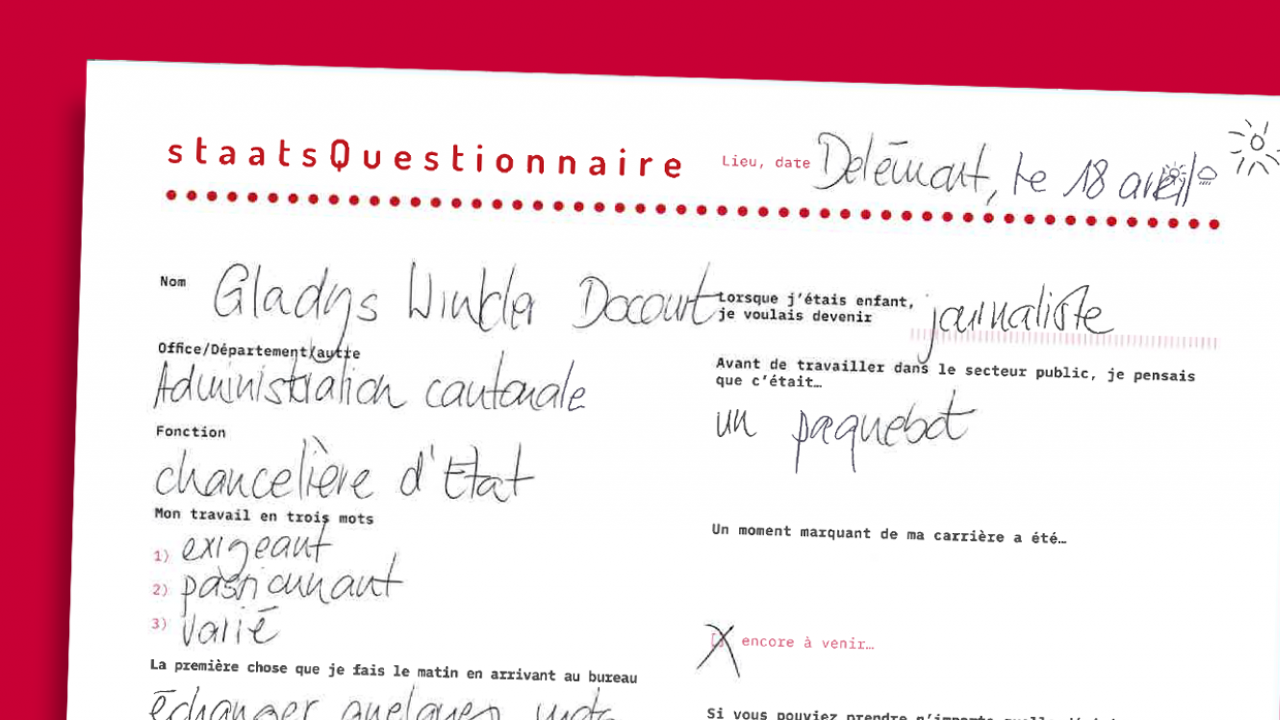 staatsQuestionnaire
Lieu, date Delémont, le 18 avril
Nom Gladys Winkler Docourt
Office/Département/autre
Administration cantonale
Fonction
chancelière d'Etat
Mon travail en trois mots
1) exigeant
2) passionnant
3) varié
La première chose que je fais le matin en arrivant au bureau
échanger quelques mots
Lorsque j'étais enfant,
je voulais devenir journaliste
Avant de travailler dans le secteur public, je pensais
que c'était…
un paquebot
Un moment marquant de ma carrière a été…
encore à venir…
Si vous pouviez prendre n'importe quelle